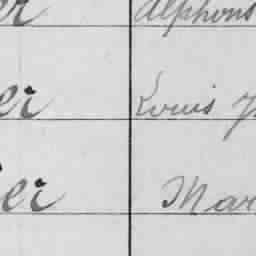 er Alphons
er Louis J
er Mar